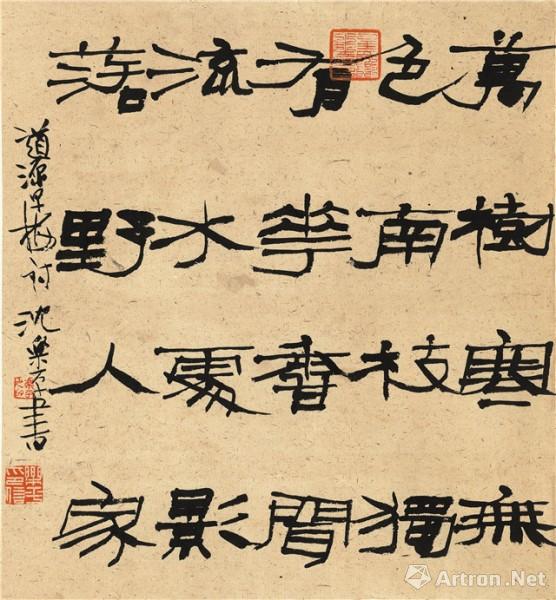 萬樹寒無
色南枝獨
有華香聞
流水處影
落野人家
道源早梅詩 沈樂平書
Artron.Net